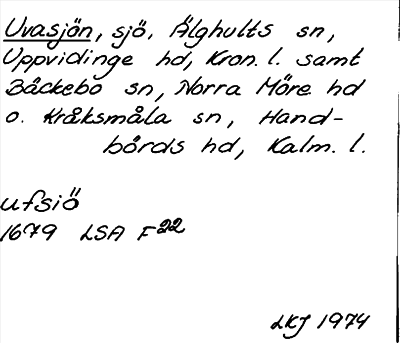 Uvasjön, sjö, Älghults sn,
Uppvidinge hd, Kron. l. samt
Bäckebo sn, Norra Möre hd
o. Kråksmåla sn, Hand-
börds hd, Kalm. l.
ufsiö
1679 LSA F22
LKJ 1974